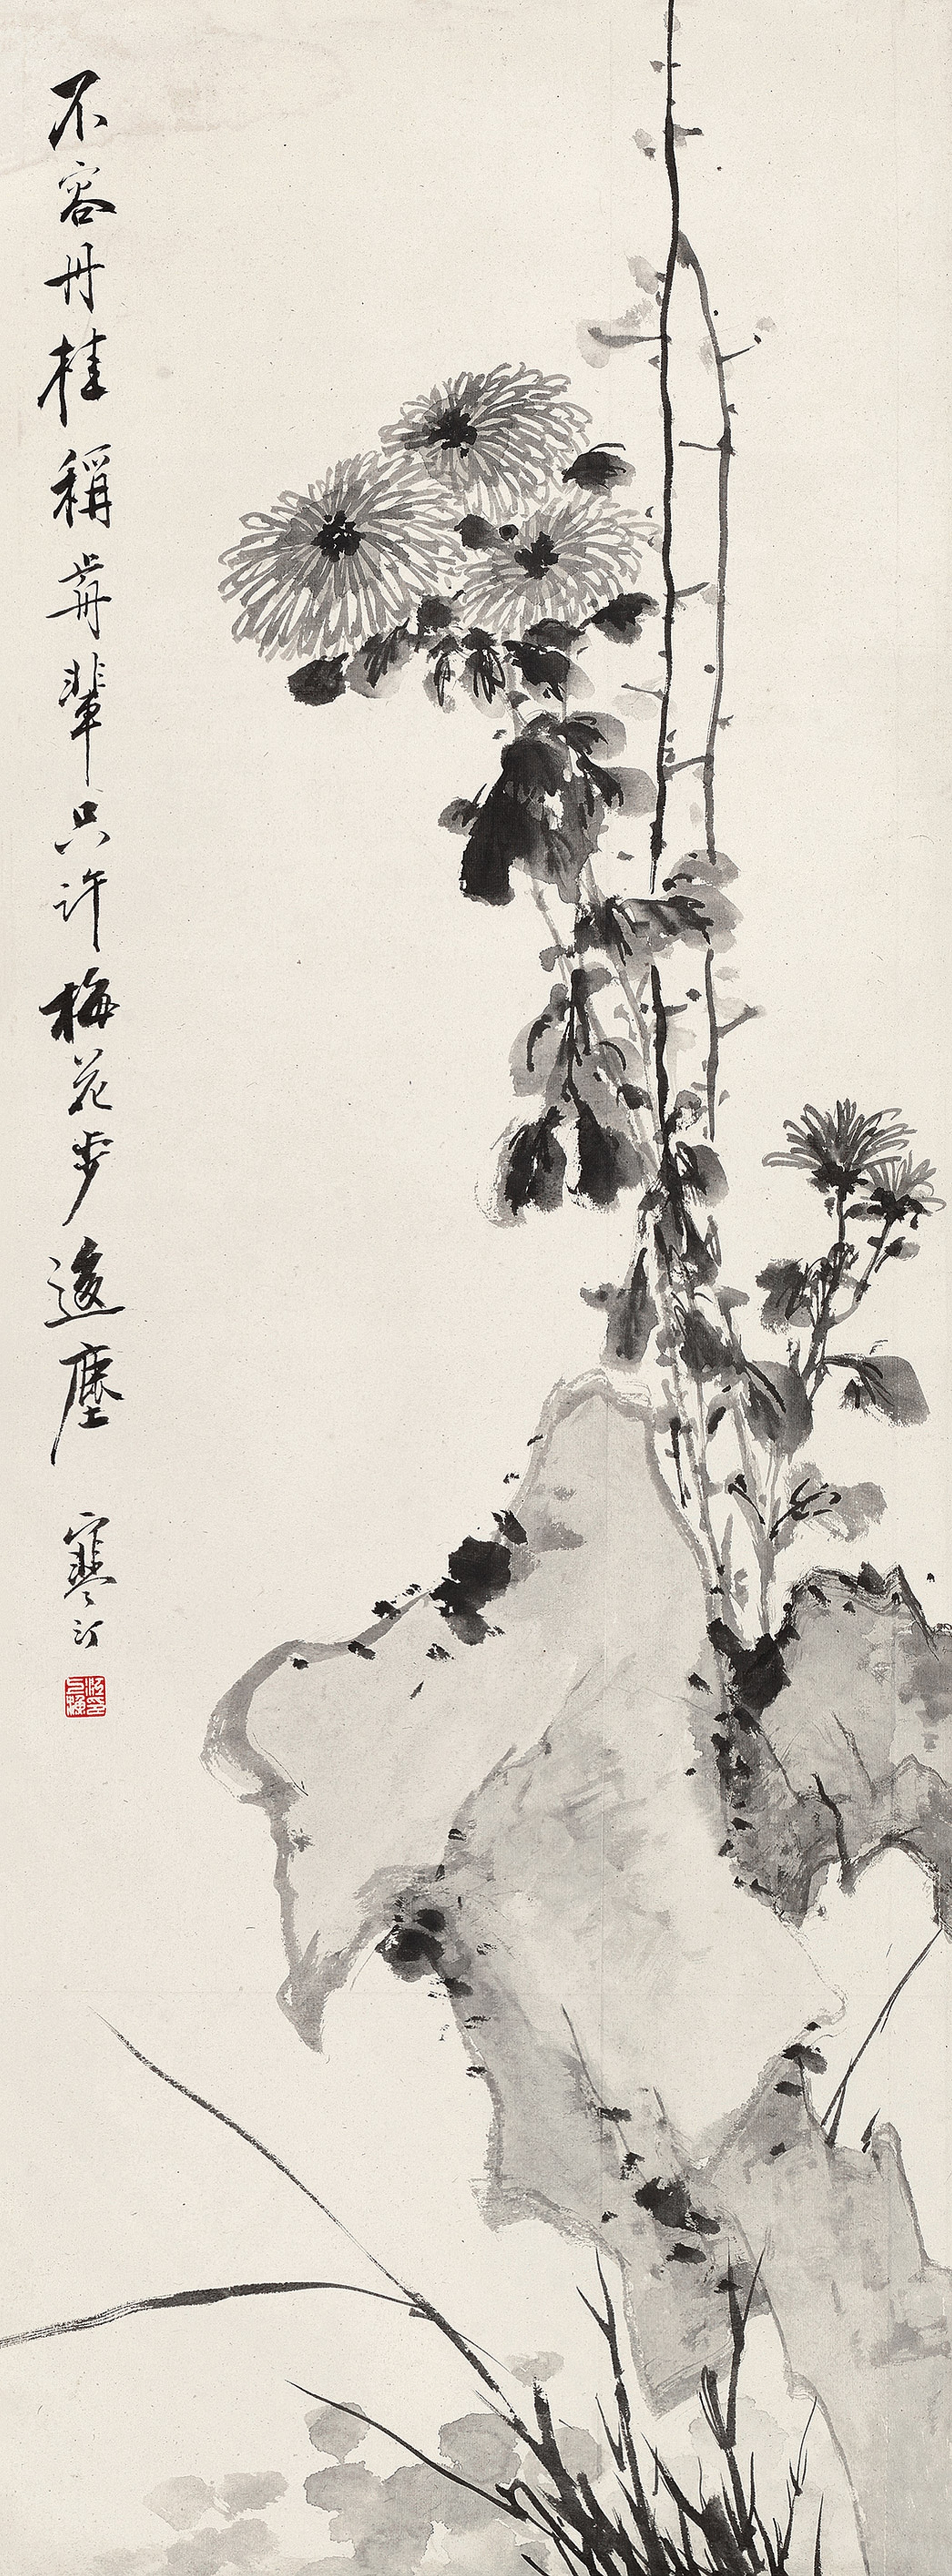 不容丹桂稱歬輩只許梅花步後塵
寒汀